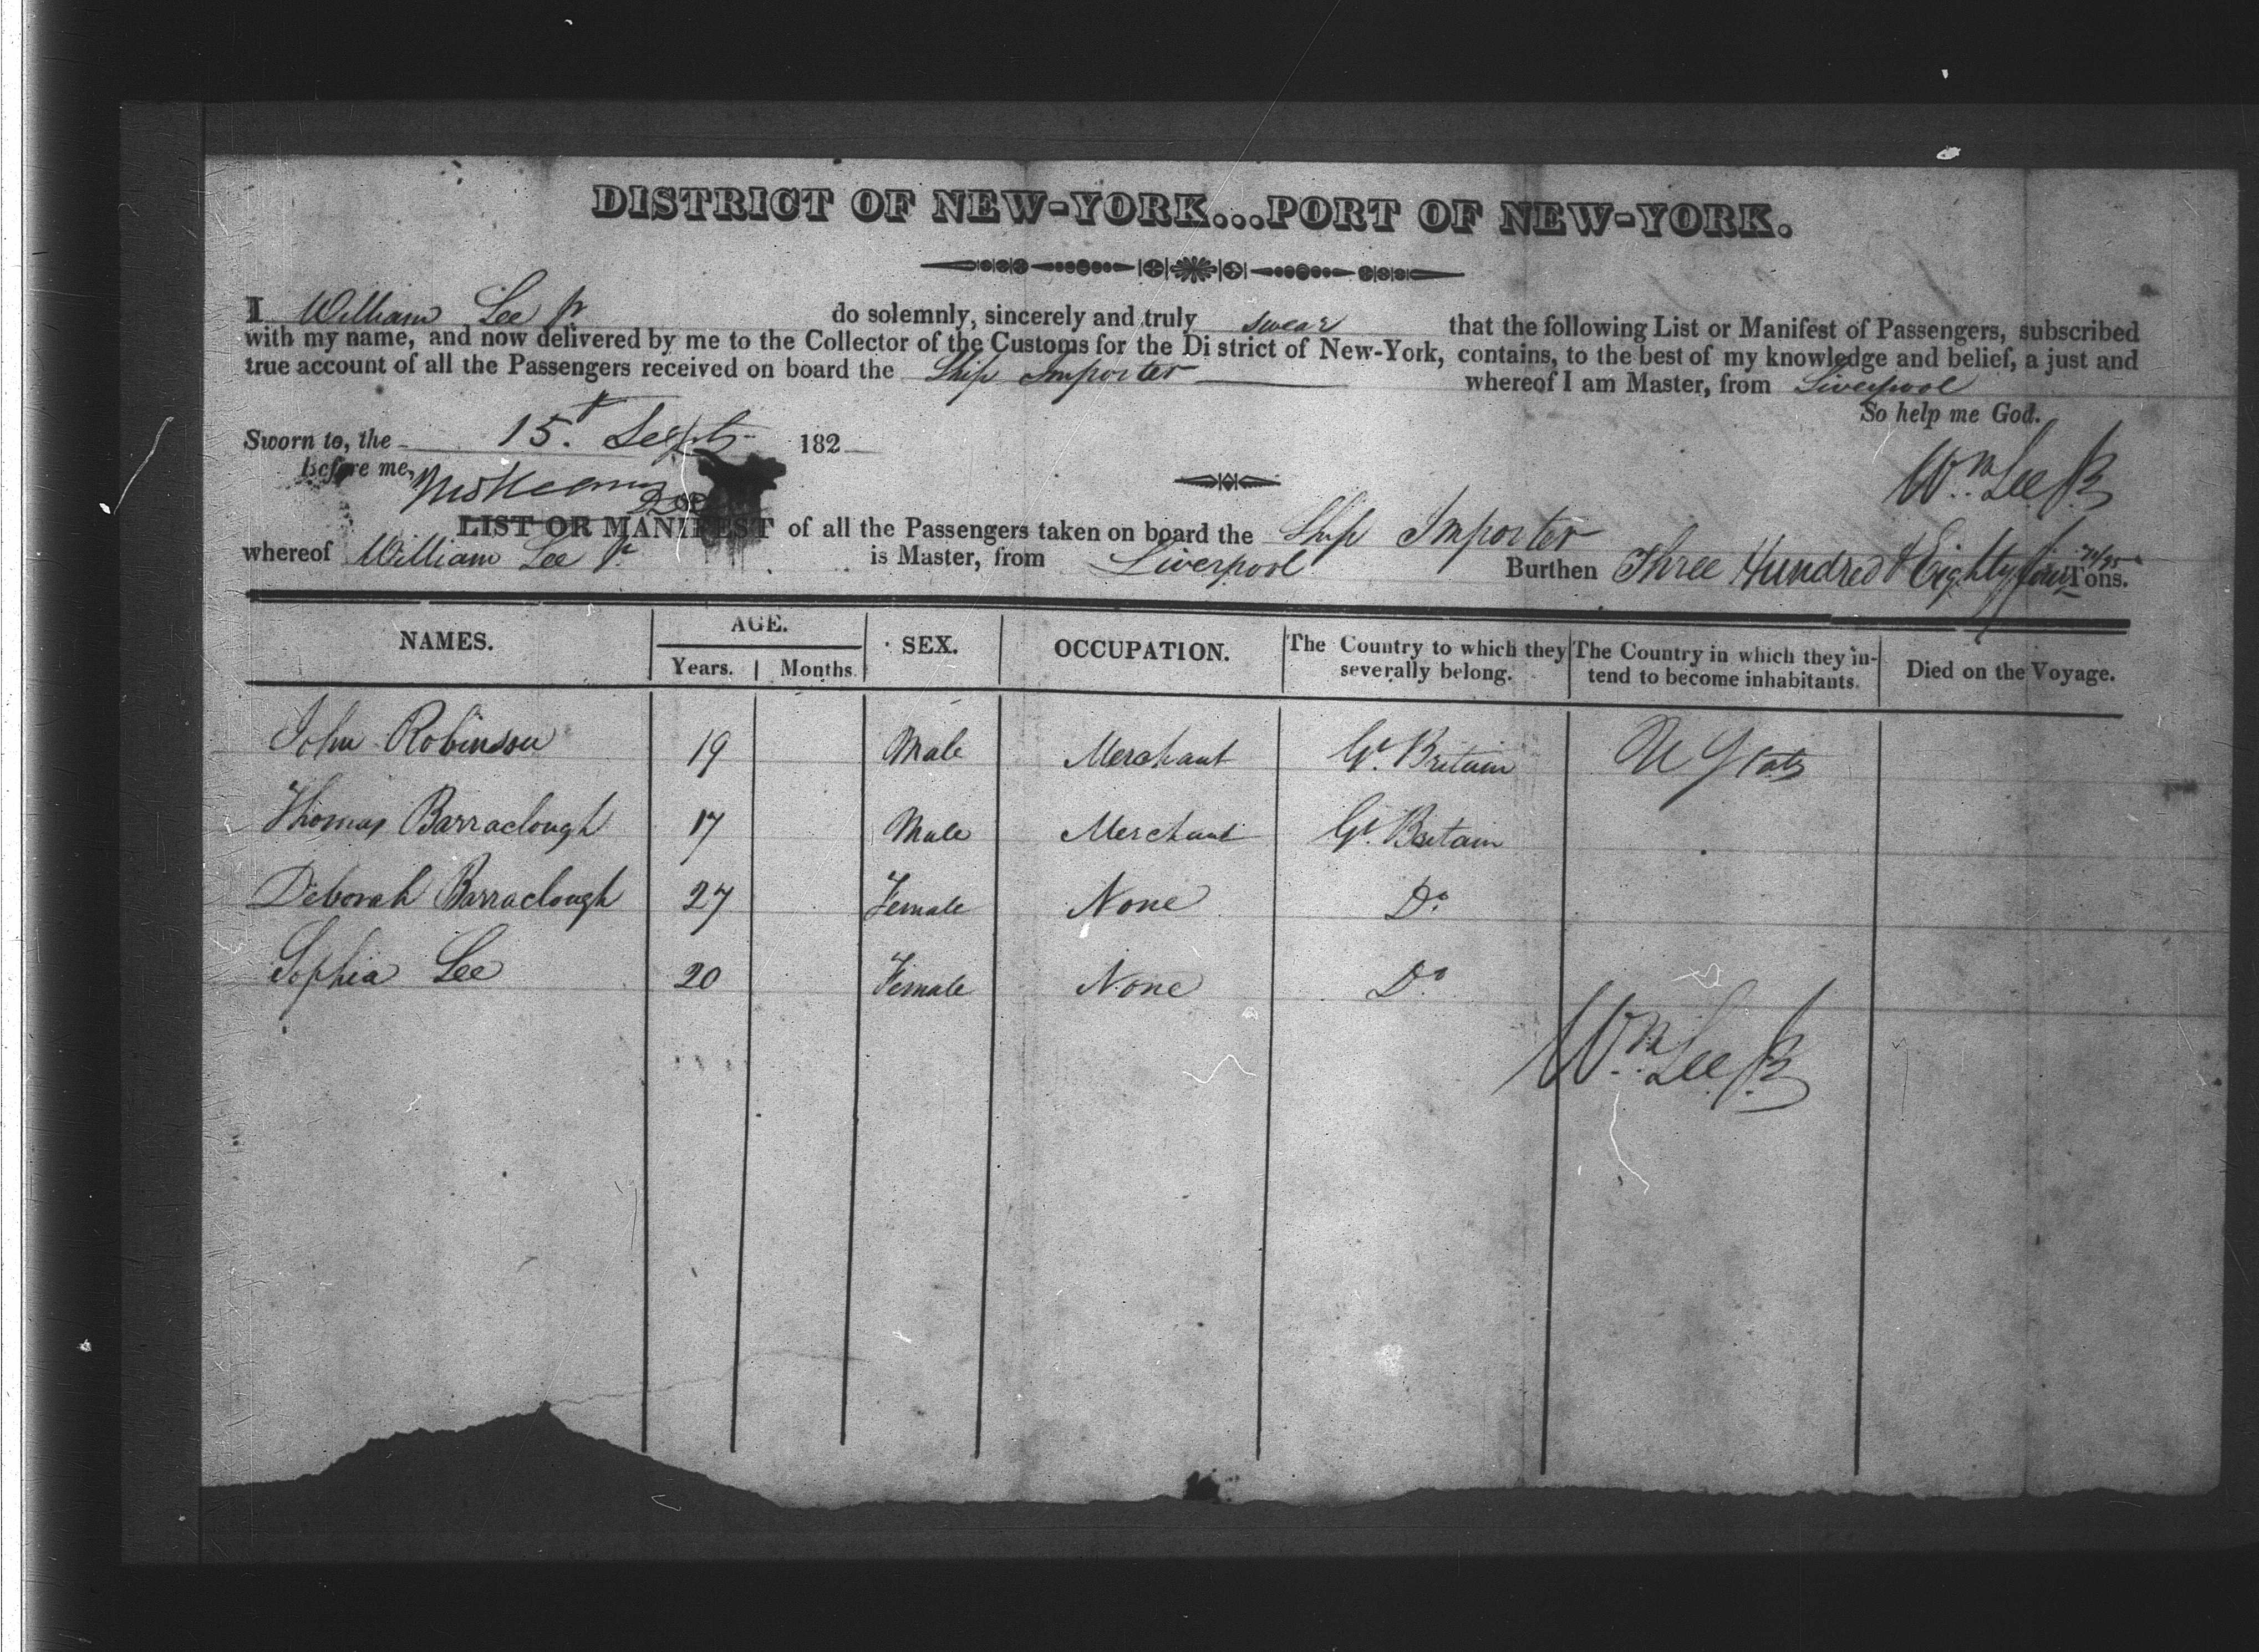 DISTRICT OF NEW-YORK...PORT OF NEW-YORK.
I William Lee Jr do solemnly, sincerely and truly swear that the following List or Manifest of Passengers, subscribed
with my name, and now delivered by me to the Collector of the Customs for the Di strict of New-York, contains, to the best of my knowledge and belief, a just and
true account of all the Passengers received on board the Ship Importer whereof I am Master, from Liverpool
So help me God.
Sworn to, the 15. Sept 182
Before me,
Wm. Lee Jr
LIST OR MANIFEST of all the Passengers taken on board the Ship Importer
whereof William Lee Jr is Master, from Liverpool Burthen Three Hundred & Eighty four Tons.
NAMES. AGE. SEX. OCCUPATION. The Country to which they severally belong. The Country in which they in- tend to become inhabitants. Died on the Voyage.
Years. Months.
John Robinson 19 Male Merchant Gt. Britain U States
Thomas Barraclough 17 Male Merchant Gt. Britain
Deborah Barraclough 27 Female None Do.
Sophia Lee 20 Female None Do.
Wm. Lee Jr